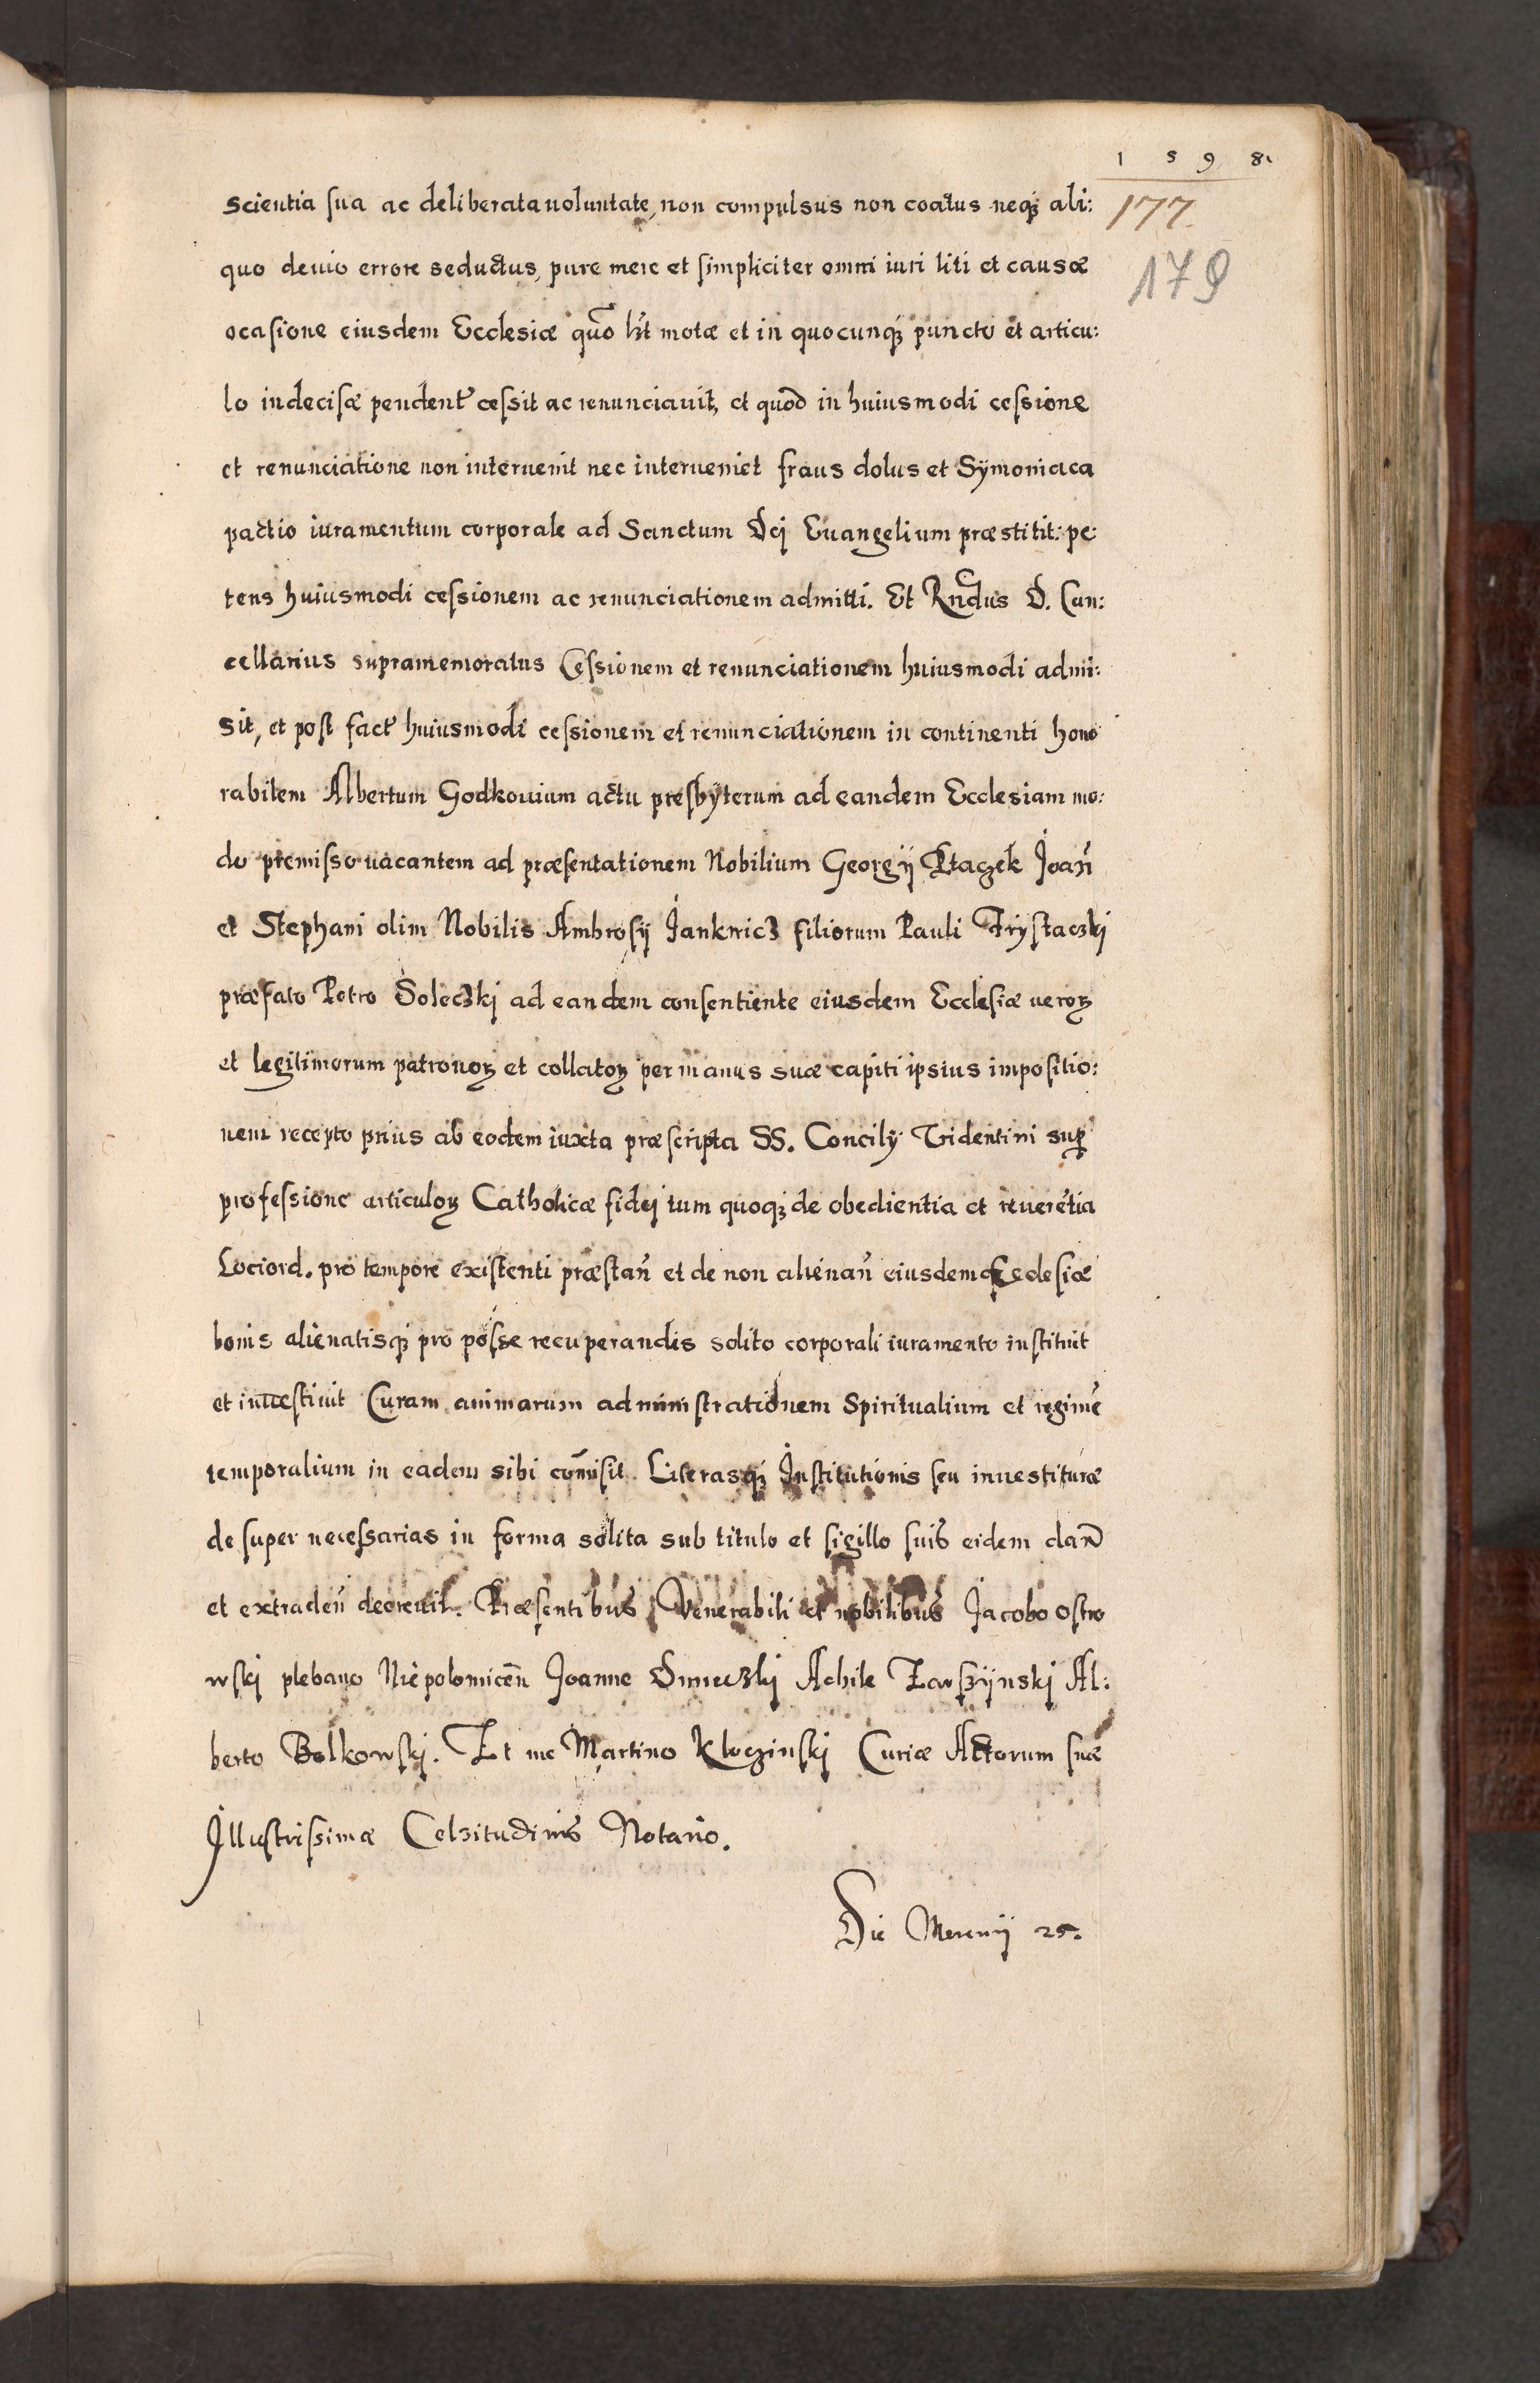 1 5 9 8.
177.
179
scientia sua ac deliberata uoluntate, non compulsus non coactus neqꝫ ali:
quo deuio errore seductus, pure mere et simpliciter omni iuri liti et causæ
ocasione eiusdem Ecclesiæ quo lr̃t motæ et in quocunqꝫ puncto et articu:
lo indecisæ pendent̃ cessit ac renunciauit, et quod in huiusmodi cessione
et renunciatione non interuenit nec interueniet fraus dolus et Sÿmoniaca
pactio iuramentum corporale ad Sanctum Dej Euangelium præstitit: pe:
tens huiusmodi cessionem ac renunciationem admitti. Et Rndus D. Can:
cellarius supramemoratus Cessionem et renunciationem huiusmodi admi:
sit, et post fact̃ huiusmodi cessionem et renunciationem in continenti hono
rabilem Albertum Godkouium actu presbÿterum ad eandem Ecclesiam mo:
do premisso uacantem ad præsentationem Nobilium Georgij Ptaczek Joañ
et Stephani olim Nobilis Ambrosij Jankwicz filiorum Pauli Trystaczkj
præfato Petro Soleczkj ad eandem consentiente eiusdem Ecclesiæ ueroꝝ
et legitimorum patronoꝝ et collatoꝝ per manus suæ capiti ipsius impositio:
nem recepto prius ab eodem iuxta præscripta SS. Concilÿ Tridentini sup̱
professione articuloꝝ Catholicæ fidej tum quoqꝫ de obedientia et reueretia
Lociord. pro tempore existenti præstañ et de non alienañ eiusdemq Ecclesiæ
bonis alienatisqꝫ pro posse recuperandis solito corporali iuramento instituit
et inuestiuit Curam animarum administrationem Spiritualium et regimẽ
temporalium in eadem sibi com̃isit. Literasqꝫ Institutionis seu inuestituræ
de super necessarias in forma solita sub titulo et sigillo suis eidem dañ
et extradeñ decreuit. Præsentibus Venerabili et nobilibus Jacobo Ostro
wskj plebano Niepolomiceñ Joanne Dmeczkj Achile Lawszÿnskj Al:
berto Bolkowskj. Et me Martino Kłoczinskj Curiæ Actorum suæ
Illustrissimæ Celsitudinis Notario.
Die Mercurij 25.